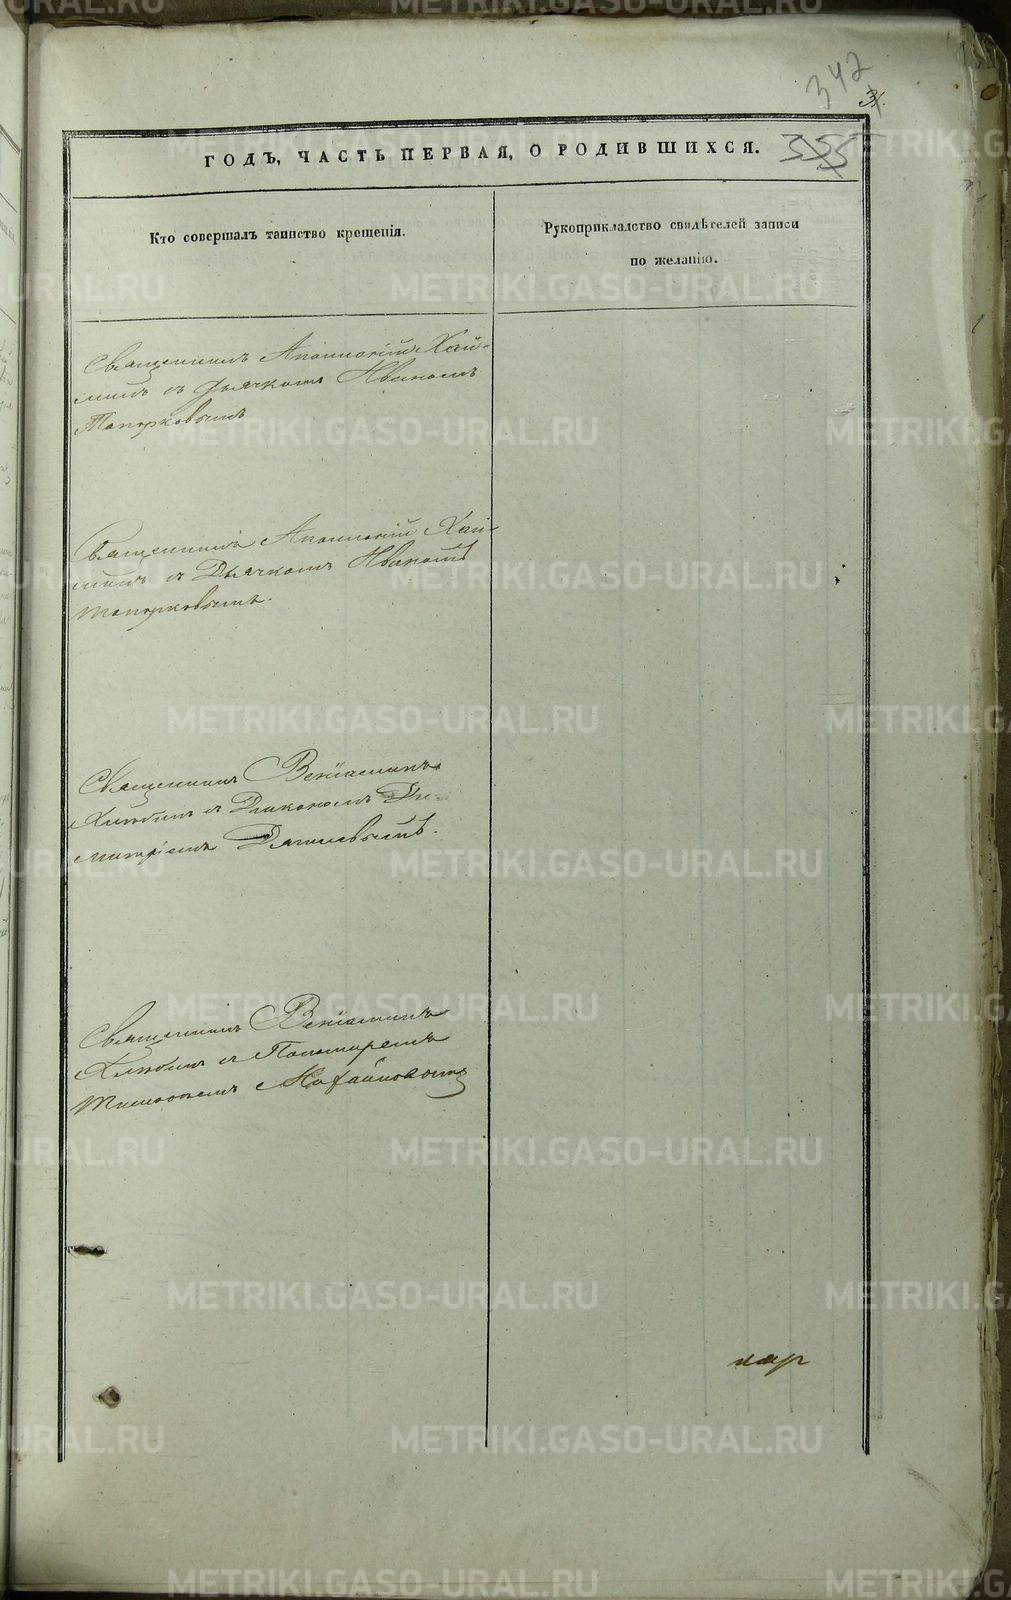 342
31.
355
ГОДЪ, ЧАСТЬ ПЕРВАЯ, О РОДИВШИХСЯ.
Кто совершалъ таинство крещенія.
Рукоприкладство свидѣтелей записи
по желанію.
Священникъ Аполлоній Хай-
минъ съ Дьячкомъ Иваномъ
Топорковымъ
Священникъ Аполлоній Хай-
минъ съ Дьячкомъ Иваномъ
Топорковымъ.
Священникъ Веніаминъ
съ Диакономъ Ди-
митріемъ
Священникъ Веніаминъ
съ Пономаремъ
METRIKI.GASO-URAL.RU